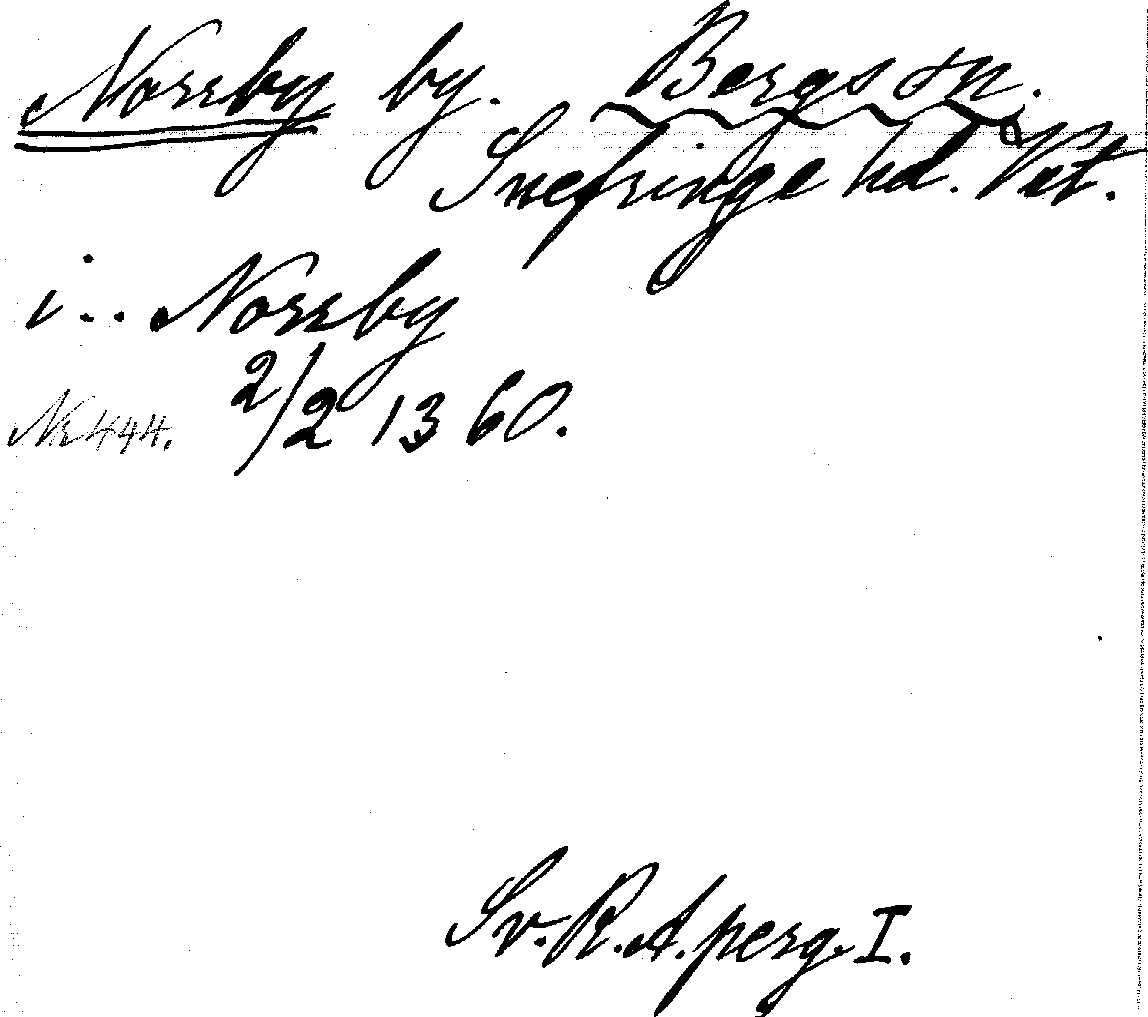 Norrby by. Bergs sn.
Snefringe hd. Vst.
i .. Norrby
2/2 1360.
Nr 444.
Sv. R. A. perg. I.